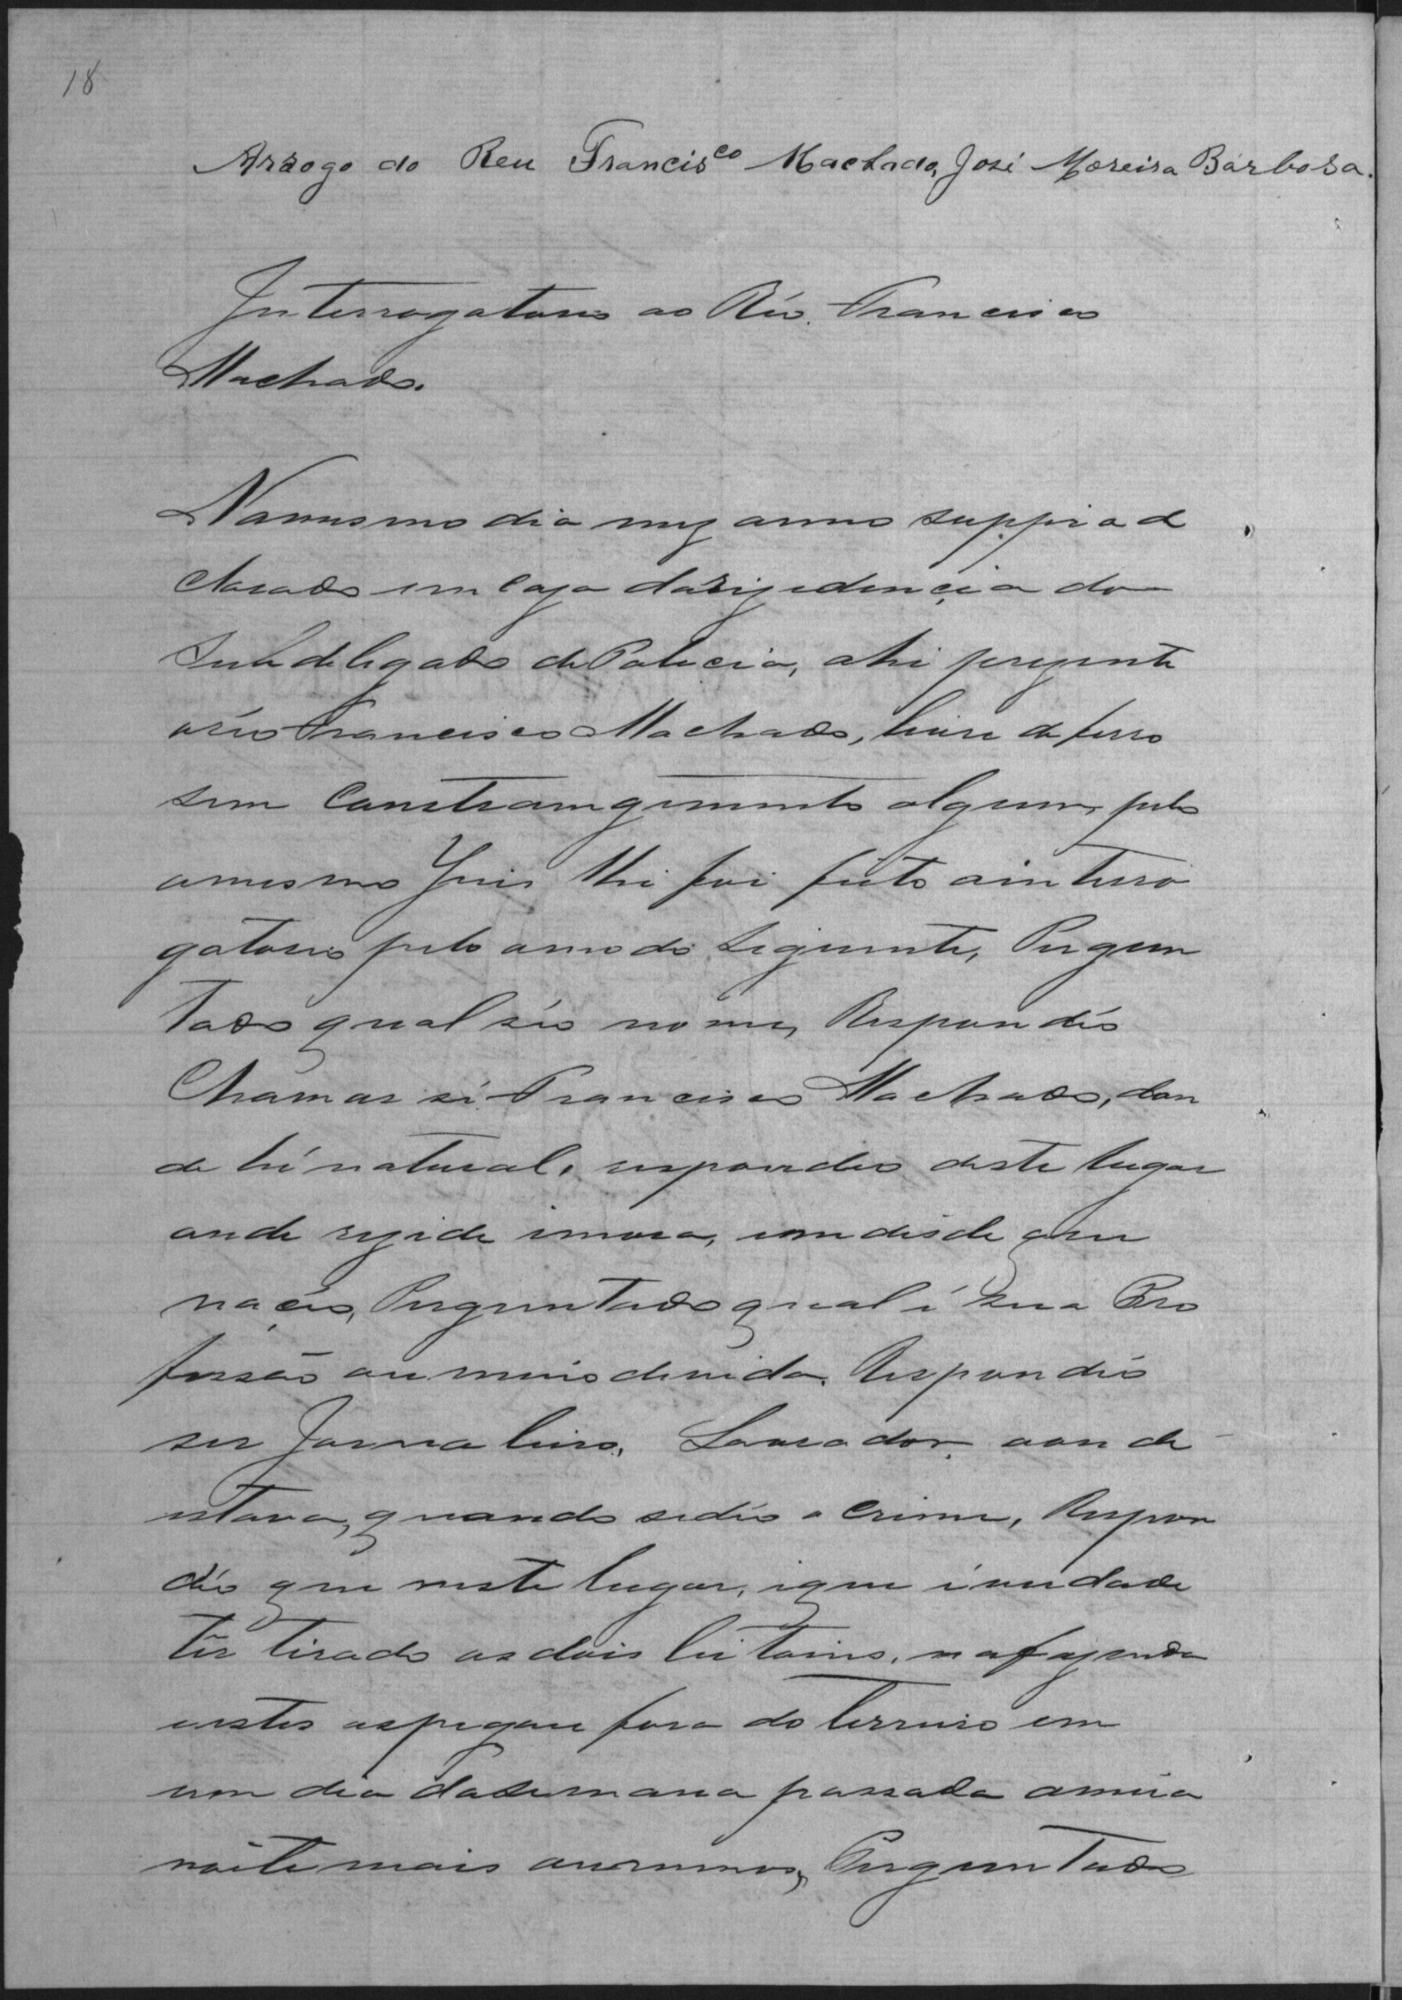 18
Arrogo do Reu Francis<sup>co</sup> Machado, José Moreira Barbosa.
Interrogatorio ao Réo Francisco
Machado.
No mesmo dia mez anno supprad
clarado em caza darezidencia do
Subdelegado de Policia, ahi prezente
oréo Francisco Machado, livre de ferro
sem constrangimento algum, pelo
omesmo Juis lhi foi feito ointerro
gatorio pelo amodo siguinte, Pergun
tado qual séo nome, Respondéo
Chamar sí Francisco Machado, don
de hé natural, respondeo deste lugar
onde rezide imora, desde que
nacéo, Perguntado qual é sua Pro
fissão ou meio devida. Respondéo
ser Jornaleiro, Lavrador, aonde
estava, quando sedéo o crime, Respon
déo que neste lugar, ique é verdade
têr tirado os dois leitoins, nafazenda
fora do terreiro em
um dia dasemana passada ameia
noite mais oumenos, Perguntado